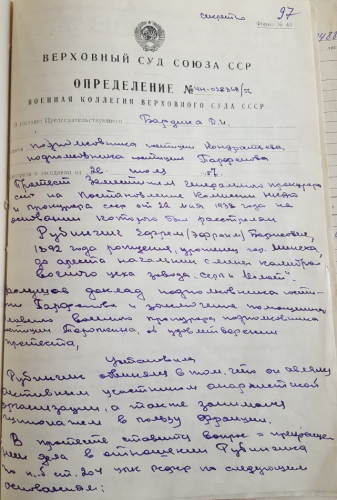 секретно
97
Форма № 43
ВЕРХОВНЫЙ СУД СОЮЗА ССР
ОПРЕДЕЛЕНИЕ № 4н-028748/56
ВОЕННАЯ КОЛЛЕГИЯ ВЕРХОВНОГО СУДА СССР
в составе: Председательствующего
подполковника юстиции Кондратьева
подполковника юстиции
в заседании от
Протест Заместителя Генерального прокурора
СССР на Постановление Комиссии НКВД
и Прокурора СССР от 28 мая 1938 года на
основании которого был расстрелян
Рубинчик Ефрем (Эфроим) Борисович,
1892 года рождения, уроженец гор. Минска,
до ареста начальник смены калибро-
вочного цеха завода "Серп и Молот".
доклад подполковника юсти-
и заключение помощника
военного прокурора подполковника
юстиции об удовлетворении
протеста,
Установила
Рубинчик обвинялся в том, что он являлся
активным участником
организации, а также занимался
шпионажем в пользу Франции.
В протесте ставится вопрос о прекраще-
нии дела в отношении Рубинчика
по п. 5 ст. 204 УПК РСФСР по следующим
основаниям: